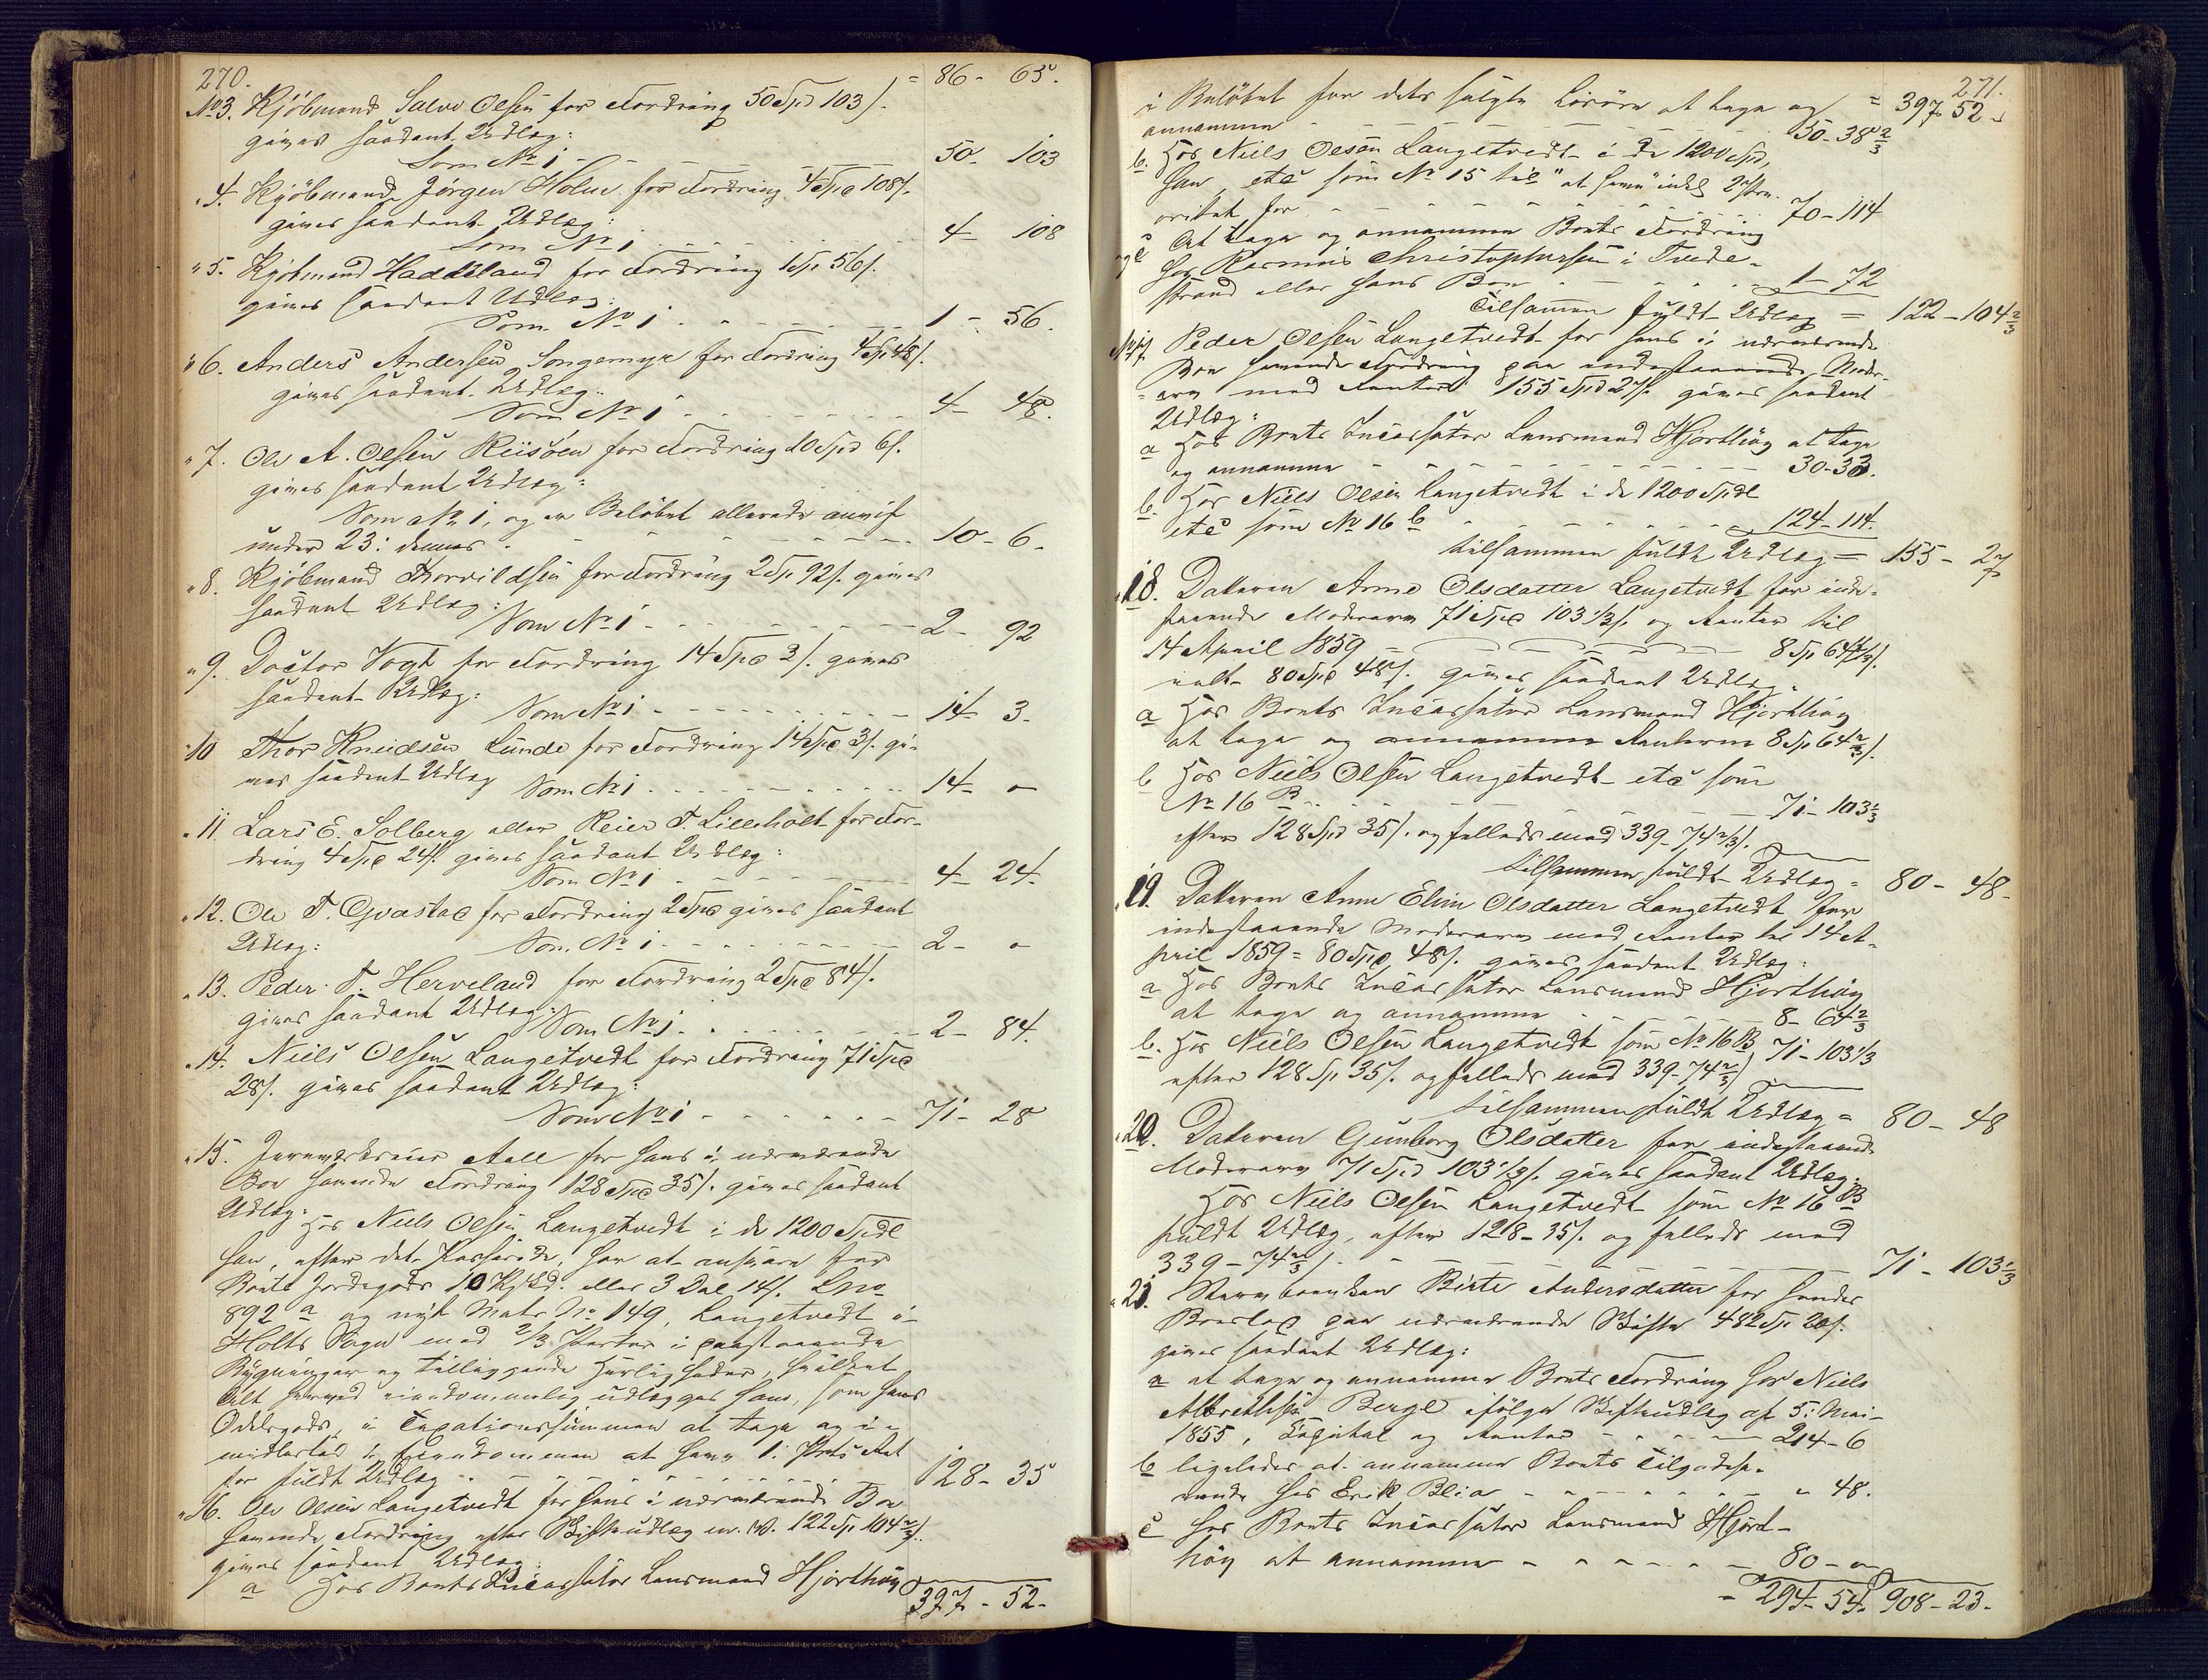 270.
= 86 - 65.
No 3. Kjöbmand Salve Olsen for Fordring 50 Spd 103 /.
gives saadant Udlæg:
Som No 1 - - - 50 - 103
" 4. Kjöbmand Jörgen Holm for Fordring 4 Spd 108/.
gives saadant Udlæg:
Som No 1 - - - 4 - 108
" 5. Kjöbmand Haddeland for Fordring 1 Sp 56/.
gives saadant Udlæg:
Som No 1 - - - 1 - 56.
" 6. Anders Andersen Songemyr for Fordring 4 Sp 48/.
gives saadant Udlæg:
Som No 1 - - - 4 - 48.
" 7. Ole A. Olsen Reiisöen for Fordring 10 Spd 6/.
gives saadant Udlæg:
Som No 1, og er Beløbet allerede anvist
under 23: dennes - - - 10 - 6 -
" 8. Kjöbmand Thorvildsen for Fordring 2 Sp 92/. gives
saadant Udlæg:
Som No 1 - - - 2 - 92
" 9. Doctor Vogt for Fordring 14 Spd 3/. gives
saadant Udlæg:
Som No 1 - - - 14 - 3 -
" 10 Thor Knudsen Lunde for Fordring 14 Spd 3/. gi-
ves saadant Udlæg Som No 1 - - - 14 - "
" 11 Lars E. Solberg eller Reier T. Lilleholt for For-
dring 4 Spd 24/. gives saadant Udlæg:
Som No 1 - - - 4 - 24.
" 12. Ole T. Qvastad for Fordring 2 Spd gives saadant
Udlæg: Som No 1 - - - 2 - "
" 13. Peder T. Herveland for Fordring 2 Spd 84/.
gives saadant Udlæg: Som No 1 - - - 2 - 84.
" 14. Niels Olsen Langetvedt for Fordring 71 Spd
28/. gives saadant Udlæg:
Som No 1 - - - 71 - 28
" 15. Jernværkseier Aall for hans i nærværende
Boe havende Fordring 128 Spd 35/. gives saadant
Udlæg:
Hos Niels Olsen Langetvedt i de 1200 Spdl
han, efter det Passerede, har at ansvare for
Boets Jordegods 10 Skjpd. eller 3 Dal 14/. Lno
892 a og nyt Matr No 149, Langetvedt i
Holts Sogn med 2/3 Parter i paastaaende
Bygninger og tilliggende Herligheder, hvilket
Alt herved eiendommelig udlægges ham, som hans
Odelsgods, i Taxationssummen at tage og i-
midlertid i Eiendommen at have 1: Prts Ret
for fuldt Udlæg - - - 128 - 35
" 16. Ole Olsen Langetvedt for hans i nærværende Boe
havende Fordring efter Skifteudlæg m. V. 122 Sp 104 2/3/.
gives saadant Udlæg:
a Hos Boets Incassator Lensmand Hjorthöy
397 - 52 -
271.
= 397 - 52 -
i Beløbet for det solgte Løsøre at tage og
annamme - - - 50 - 38 2/3
b. Hos Niels Olsen Langetvedt i de 1200 Spd,
han etc som No 15 til "at have" inkl 2den Pri-
oritet for - - - 70 - 114
og c At tage og annamme Boets Fordring
hos Rasmus Christophersen i Tvede-
strand eller hans Boe - - - 1 - 72
Tilsammen fuldt Udlæg = 122 - 104 2/3
No 17. Peder Olsen Langetvedt for hans i nærværende
Boe havende Fordring paa indestaaende Mødre-
arv med Renter 155 Spd 27/. gives saadant
Udlæg:
a Hos Boets Incassator Lensmand Hjorthöy at tage
og annamme - - - 30 - 33.
b. Hos Niels Olsen Langetvedt i de 1200 Spdl
etc som No 16 b - - - 124 - 114.
tilsammen fuldt Udlæg = 155 - 27
" 18. Datteren Anne Olsdatter Langetvedt for inde-
staaende Mødrearv 71 Spd 103 1/3/. og Renter til
14 April 1859 - - - 8 Sp 64 2/3/.
ialt 80 Spd 48/. gives saadant Udlæg.
a Hos Boets Incassator Lensmand Hjorthöy
at tage og annamme Renterne 8 Sp 64 2/3/.
b Hos Niels Olsen Langetvedt etc som
No 16 B - - - 71 - 103 1/3
efter 128 Spd 35/. og fælleds med 339 - 74 2/3/.
tilsammen fuldt Udlæg = 80 - 48 -
" 19. Datteren Anne Elen Olsdatter Langetvedt for
indestaaende Mødrearv med Renter til 14 A-
pril 1859 = 80 Spd 48/. gives saadant Udlæg:
a Hos Boets Incassator Lensmand Hjorthöy
at tage og annamme - - - 8 - 64 2/3
b. Hos Niels Olsen Langetvedt som No 16 B 71 - 103 1/3
efter 128 Sp 35/. og fælleds med 339 - 74 2/3/
tilsammen fuldt Udlæg = 80 - 48
" 20. Datteren Gunborg Olsdatter for indestaaende
Mødrearv 71 Spd 103 1/3/. gives saadant Udlæg:
Hos Niels Olsen Langetvedt som No 16 B
fuldt Udlæg, efter 128 - 35/. og fælleds med
339 - 74 2/3/. - - - 71 - 103 1/3
" 21. Stervboenken Birte Andersdatter for hendes
Boeslod paa nærværende Skifte 482 Sp 20/.
gives saadant Udlæg:
a at tage og annamme Boets Fordring hos Niels
Albrethsen Berge ifølge Skifteudlæg af 5: Mai
1855, Capital og Renter - - - 214 - 6
b ligeledes at annamme Boets Tilgodeha-
vende hos Erik Blia - - - " 48.
c hos Boets Incassator Lensmand Hjort-
höy at annamme - - - 80 - "
= 294 - 54. 908 - 23 -